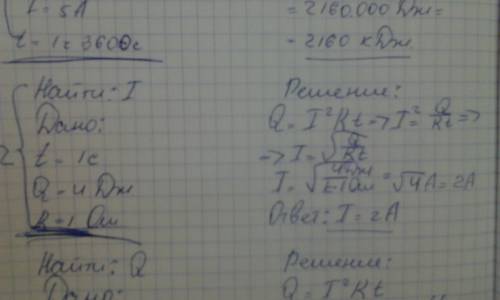 I = 5 А
t = 1ч 3600с
= 2160.000 Дж =
= 2160 кДж
2
Найти: I
Дано:
t = 1с
Q = 4 Дж
R = 1 Ом
Решение:
Q = I²Rt => I² = Q/Rt =>
=> I = √Q/Rt
I = √4Дж/ Ом = √4А = 2А
Ответ: I = 2А
Найти: Q
Дано:
Решение:
Q = I²Rt